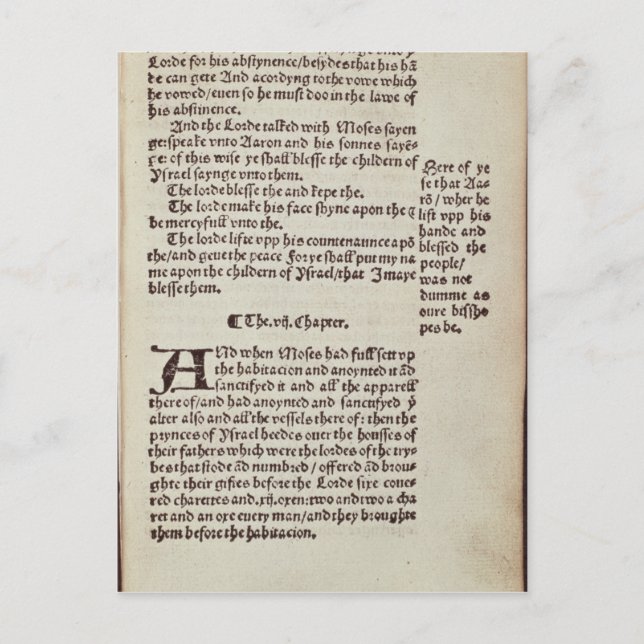 Lorde for his abstynence/besydes that his hā
de can gete And acordyng to the vowe which
he vowed/even so he must doo in the lawe of
his abstinence.
And the Lorde talked with Moses sayen
ge: speake vnto Aaron and his sonnes sayen
ge: of this wise ye shall blesse the childern of
Ysrael saynge vnto them.
The lorde blesse the and kepe the.
The lorde make his face shyne apon the &
be mercyfull vnto the.
The lorde lifte vpp his countenaunce apō
the/and geue the peace For ye shall put my na
me apon the childern of Ysrael/that I maye
blesse them.
Here of ye
se that Aa-
rō/wher he
lift vpp his
hande and
blessed the
people/
was not
dumme as
oure bissho
pes be.
¶ The .vij. Chapter.
AND when Moses had full sett vp
the habitacion and anoynted it ād
sanctifyed it and all the apparell
there of/and had anoynted and sanctifyed ẏ
alter also and all the vessels there of: then the
prynces of Ysrael heedes ouer the housses of
their fathers which were the lordes of the try-
bes that stode ād numbred/offered ād brou-
ghte their giftes before the Lorde sixe coue-
red charettes and .xij. oxen: two and two a cha
ret and an oxe euery man/and they broughte
them before the habitacion.